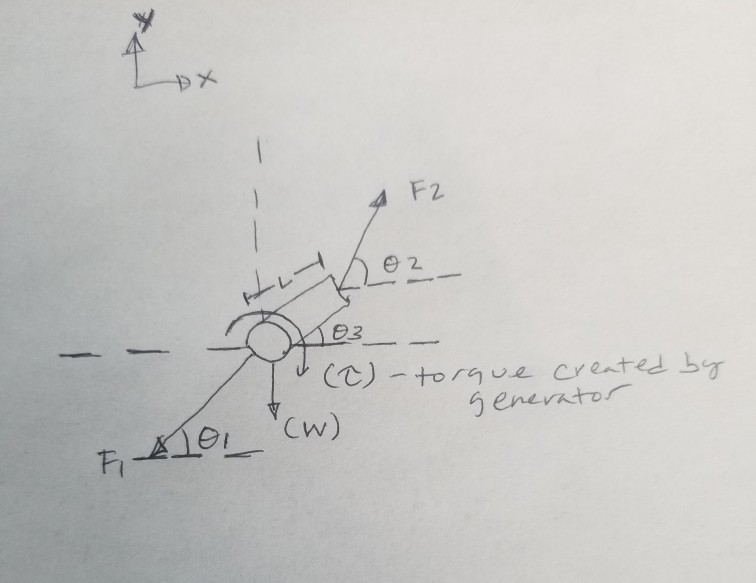 y
x
F2
θ2
L
θ3
(τ) - torque created by
generator
(W)
θ1
F1